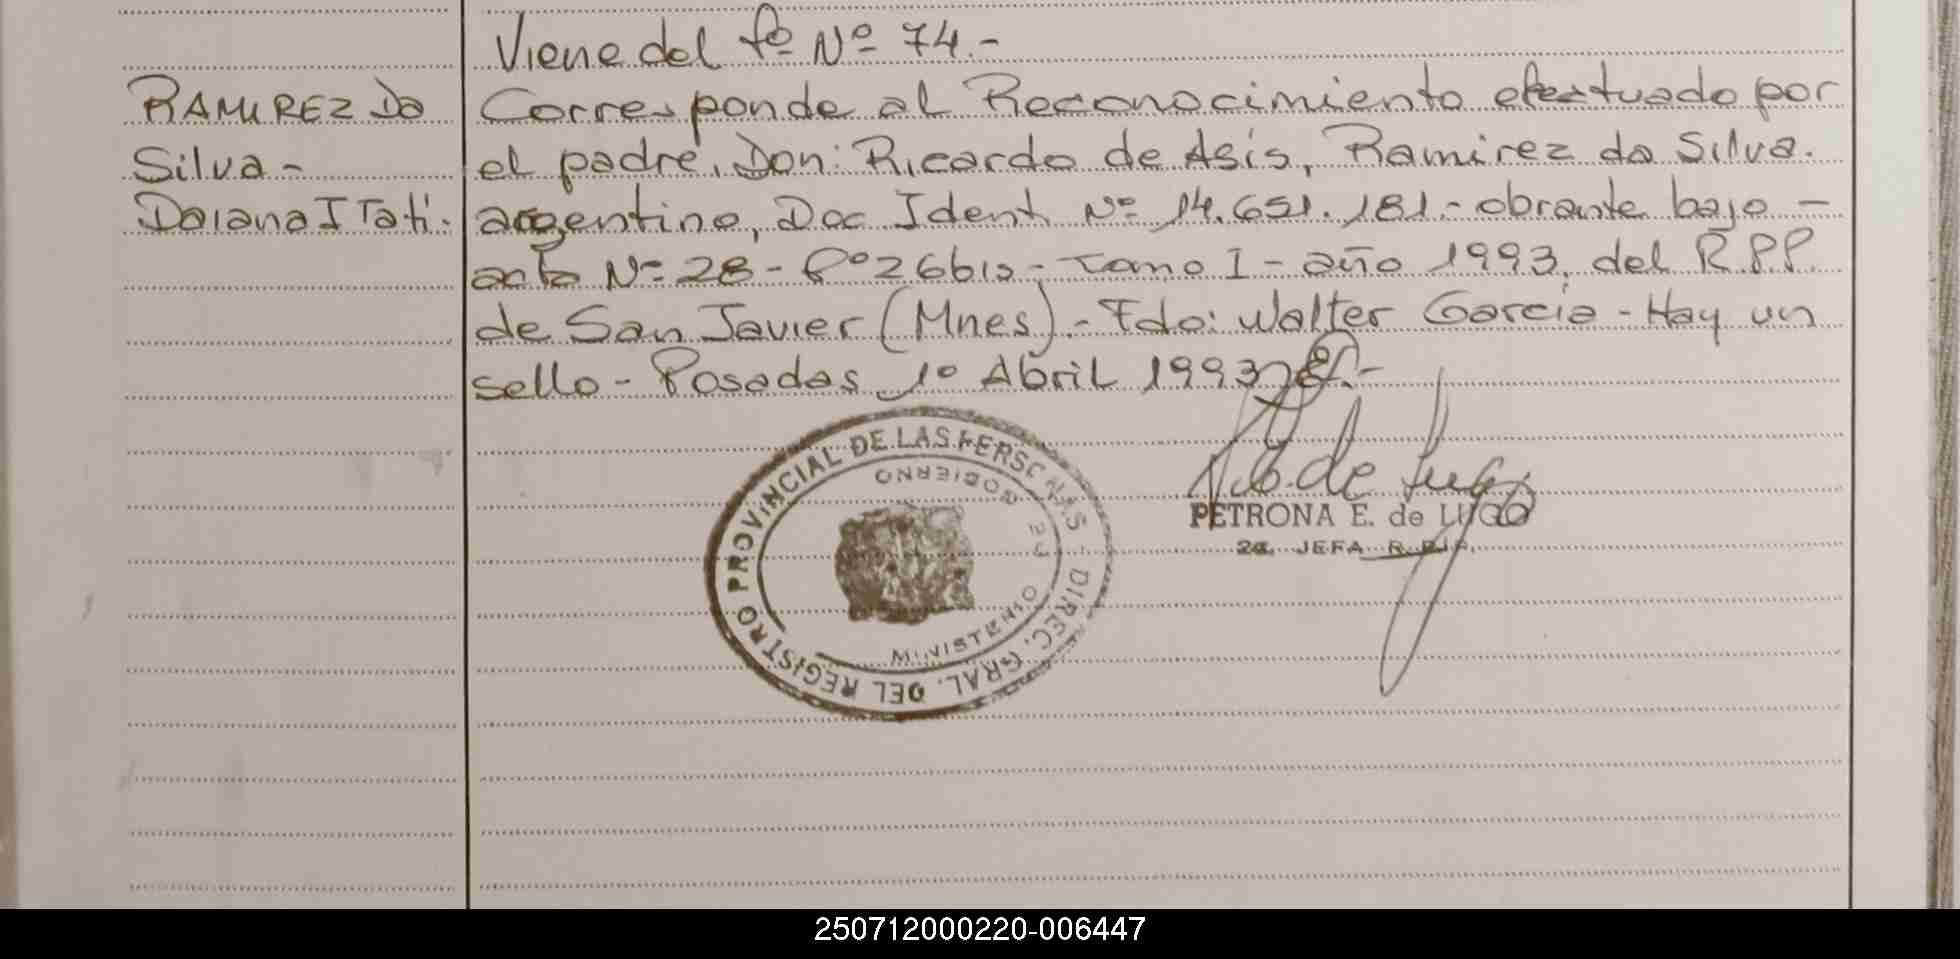 Viene del fº Nº 74.-
RAMIREZ Da
Silva-
Daiana ITatí.
Corresponde al Reconocimiento efectuado por
el padre, Don: Ricardo de Asis, Ramirez da Silva.
argentino, Doc Ident Nº 14.651.181.- obrante bajo -
acta Nº 28 - fº 26 bis - Tomo I - año 1993, del R.P.P.
de San Javier (Mnes).- Fdo: Walter Garcia - Hay un
sello - Posadas 1º Abril 1993
REGISTRO PROVINCIAL DE LAS PERSONAS - DIREC. GRAL. DEL
MINISTERIO DE GOBIERNO
PETRONA E. de LUGO
2a. JEFA
250712000220-006447